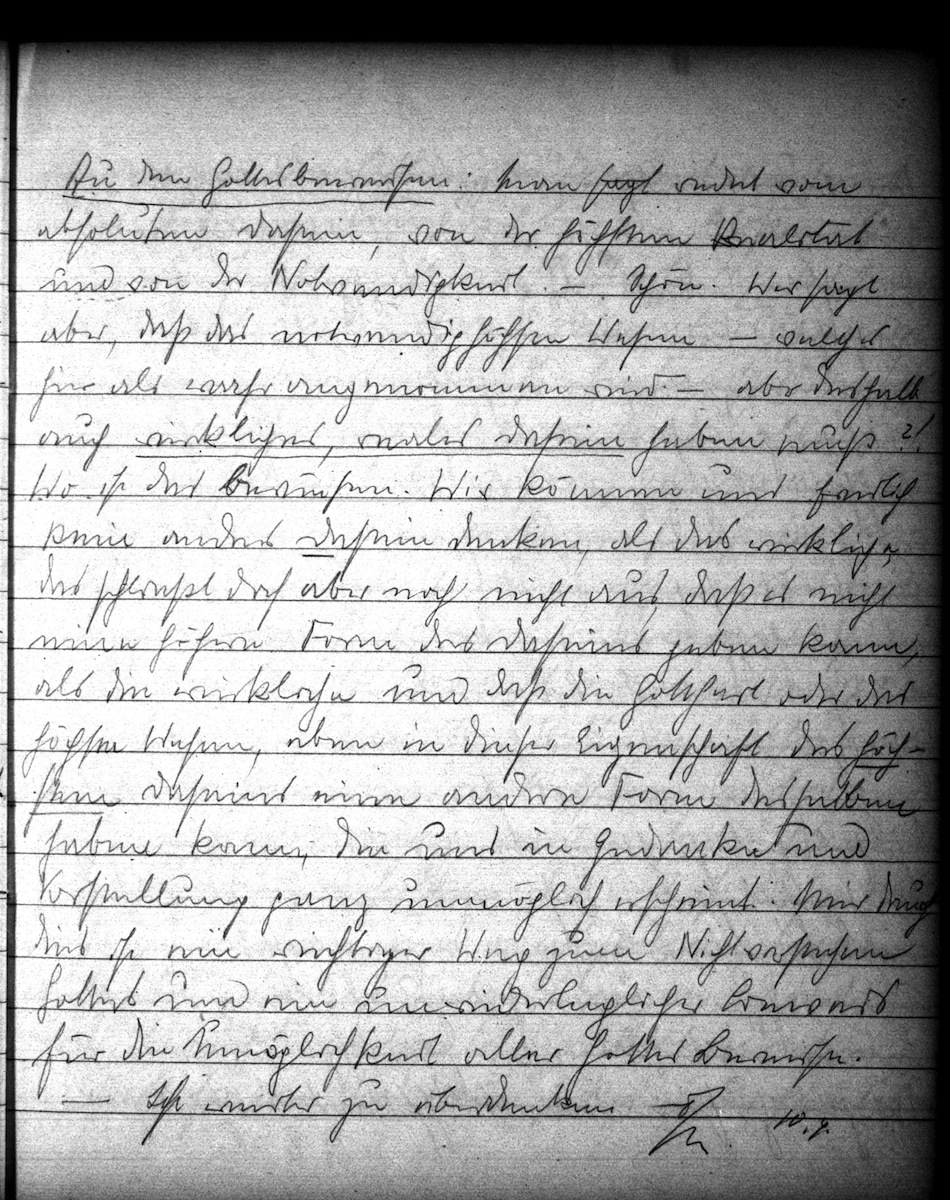 Zu den Gottesbeweisen: Man sagt redet vom
absoluten Dasein, von der höchsten Realität
und von der Notwendigkeit. — Schön. Wer sagt
aber, daß das notwendig höchste Wesen — welches
hier als wahr angenommen wird — aber deshalb
auch wirkliches, reales Dasein haben muß?!
Wo ist das bewiesen. Wir können uns freilich
kein anders Dasein denken, als das wirkliche,
das schließt doch aber noch nicht aus, daß es nicht
eine höhere Form des Daseins geben kann,
als die wirkliche und daß die Gottheit oder das
höchste Wesen, eben in dieser Eigenschaft des höch-
sten Daseins eine andere Form desselben
haben kann, die uns in Gedanke und
Vorstellung ganz unmöglich erscheint. Mir deucht
dies ist ein wichtiger Weg zum Nichtverstehen
Gottes und ein unwiderleglicher Beweis
für die Unmöglichkeit aller Gottesbeweise.
— Ist weiter zu überdenken —
10.9.